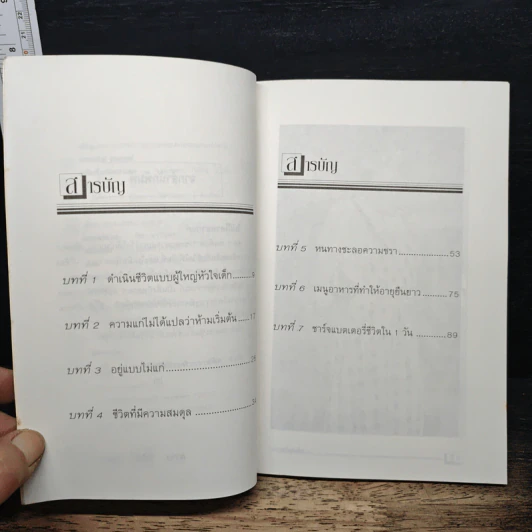 สารบัญ
บทที่ 1 ดำเนินชีวิตแบบผู้ใหญ่หัวใจเด็ก
บทที่ 2 ความแก่ไม่ได้แปลว่าห้ามเริ่มต้น
บทที่ 3 อยู่แบบไม่แก่
บทที่ 4 ชีวิตที่มีความสมดุล
สารบัญ
บทที่ 5 หนทางชะลอความชรา 53
บทที่ 6 เมนูอาหารที่ทำให้อายุยืนยาว 75
บทที่ 7 ชาร์จแบตเตอรี่ชีวิตใน 1 วัน 89